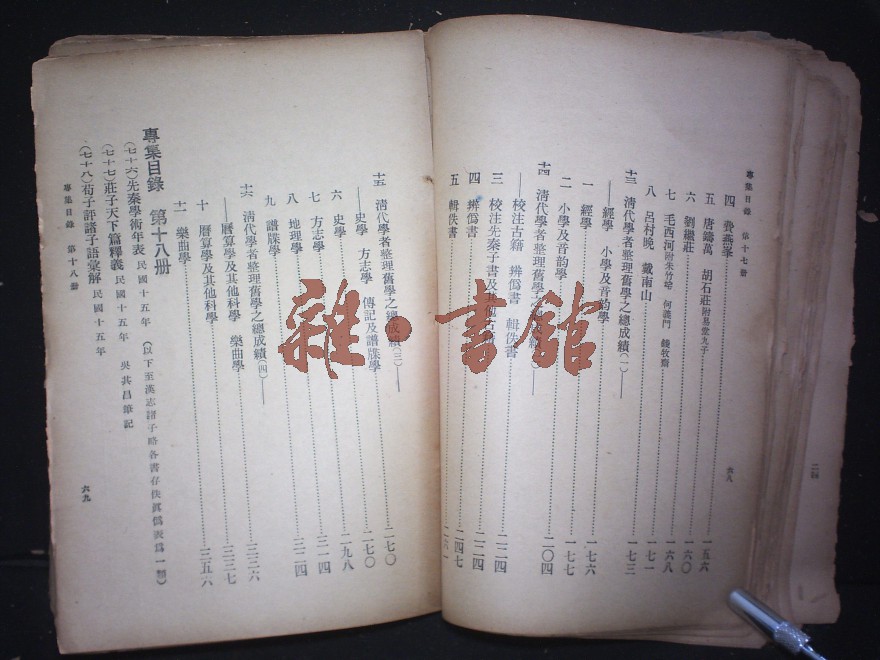 專集目錄 第十七册
四 費燕峯
五 唐鑄萬 胡石莊附易堂九子 一五六
六 劉繼莊 一六〇
七 毛西河附朱竹垞 何義門 錢牧齋 一六八
八 呂村晚 戴南山 一七一
十三 清代學者整理舊學之總成績(一)—— 一七三
——經學 小學及音韵學
一 經學 一七六
二 小學及音韵學 一七七
十四 清代學者整理舊學之總成績 二〇四
——校注古籍 辨僞書 輯佚書
三 校注先秦子書及其他古書 二二四
四 辨僞書 二二四
五 輯佚書 二四七
六九
二四
十五 清代學者整理舊學之總成績(三)—— 二七〇
——史學 方志學 傳記及譜牒學
六 史學 二七〇
七 方志學 二九八
八 地理學 三一四
九 譜牒學 三二四
十六 清代學者整理舊學之總成績(四) 三三六
——曆算學及其他科學 樂曲學
十 曆算學及其他科學 三三七
十一 樂曲學 三五六
專集目錄 第十八册
(七十六)先秦學術年表 民國十五年 (以下至漢志諸子略各書存佚眞僞表爲一類)
(七十七)莊子天下篇釋義 民國十五年 吳其昌筆記
(七十八)荀子評諸子語彙解 民國十五年
專集目錄 第十八册
六九
雜·書館